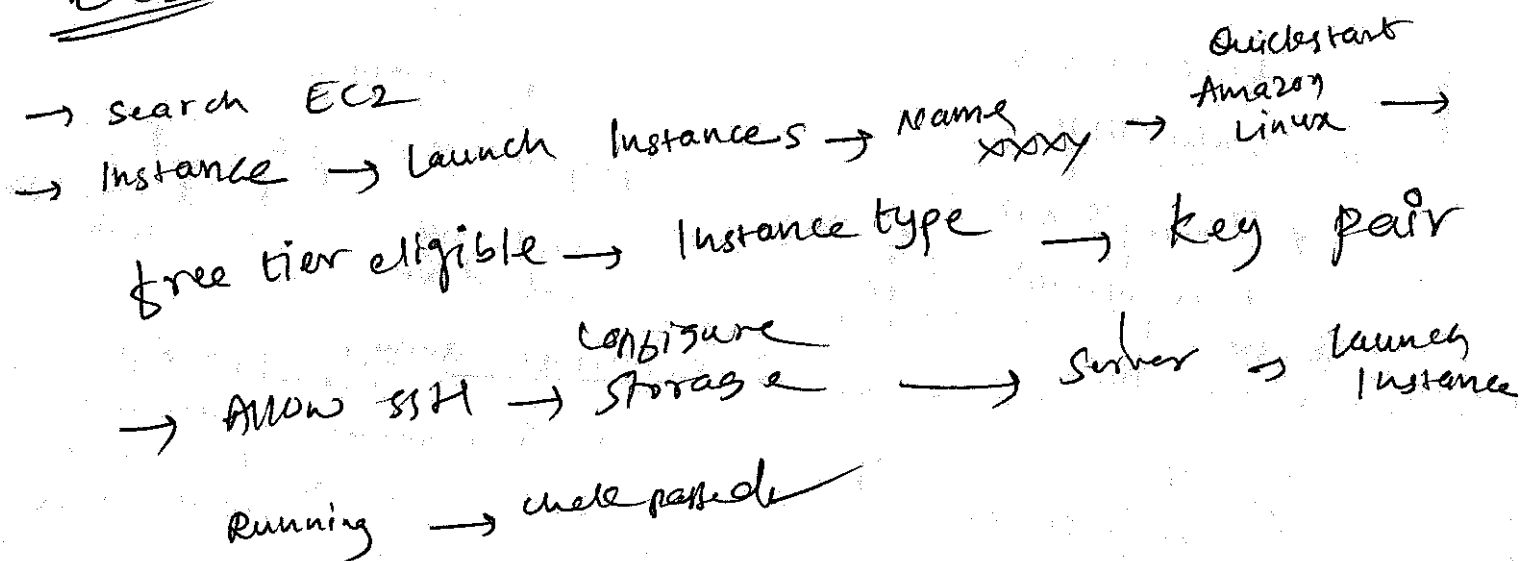 → Search EC2
→ Instance → Launch Instances → Name xxxxy → Quickstart Amazon Linux →
free tier eligible → Instance type → key pair
→ Allow SSH → Configure Storage → Server → Launch Instance
Running → check passed